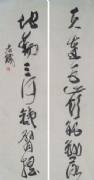 天連五嶺銀鋤落
地動三河鐵臂搖